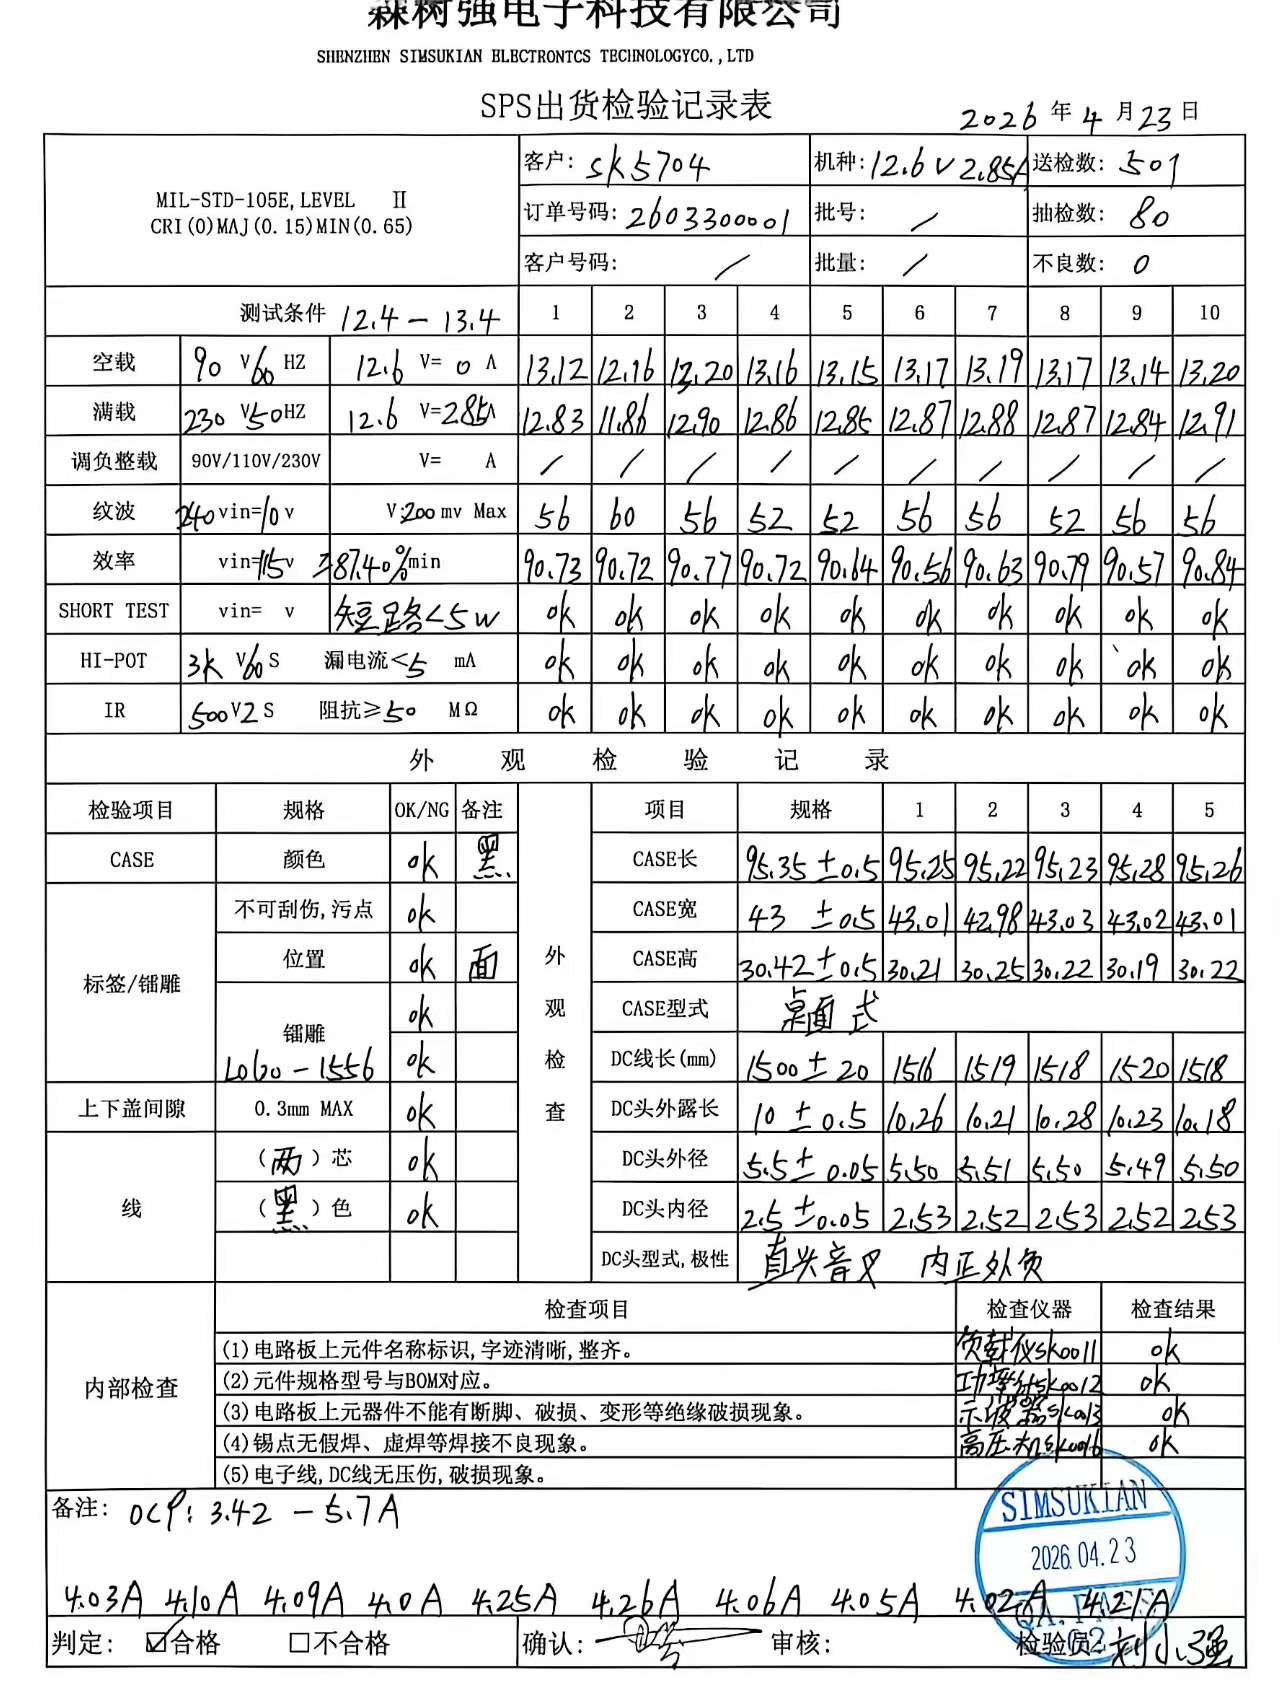 森树强电子科技有限公司
SHENZHEN SIMSUKIAN ELECTRONTCS TECHNOLOGYCO.,LTD
SPS出货检验记录表
2026 年 4 月 23 日
MIL-STD-105E, LEVEL Ⅱ
CRI(0)MAJ(0.15)MIN(0.65)
客户: SK5704 机种: 12.6V 2.85A 送检数: 501
订单号码: 2603300001 批号: / 抽检数: 80
客户号码: / 批量: / 不良数: 0
测试条件 12.4-13.4 1 2 3 4 5 6 7 8 9 10
空载 90 V 60 HZ 12.6 V= 0 A 13.12 12.16 13.20 13.16 13.15 13.17 13.19 13.17 13.14 13.20
满载 230 V 50 HZ 12.6 V= 2.85A 12.83 11.86 12.90 12.86 12.85 12.87 12.88 12.87 12.84 12.91
调负整载 90V/110V/230V V= A / / / / / / / / / /
纹波 240 vin=10 v V: 200 mv Max 56 60 56 52 52 56 56 52 56 56
效率 vin=115 v ≥87.40%min 90.73 90.72 90.77 90.72 90.64 90.56 90.63 90.79 90.57 90.84
SHORT TEST vin= v 短路<5W ok ok ok ok ok ok ok ok ok ok
HI-POT 3K V 60 S 漏电流<5 mA ok ok ok ok ok ok ok ok ok ok
IR 500 V 2 S 阻抗≥50 MΩ ok ok ok ok ok ok ok ok ok ok
外观检验记录
检验项目 规格 OK/NG 备注 外观检查 项目 规格 1 2 3 4 5
CASE 颜色 ok 黑 CASE长 95.35±0.5 95.25 95.22 95.23 95.28 95.26
标签/镭雕 不可刮伤,污点 ok CASE宽 43 ±0.5 43.01 42.98 43.03 43.02 43.01
位置 ok 面 CASE高 30.42±0.5 30.21 30.25 30.22 30.19 30.22
镭雕 ok CASE型式 桌面式
L060-1556 ok DC线长(mm) 1500±20 1516 1519 1518 1520 1518
上下盖间隙 0.3mm MAX ok DC头外露长 10 ±0.5 10.26 10.21 10.28 10.23 10.18
线 (两)芯 ok DC头外径 5.5±0.05 5.50 5.51 5.50 5.49 5.50
(黑)色 ok DC头内径 2.5±0.05 2.53 2.52 2.53 2.52 2.53
DC头型式,极性 直头音叉 内正外负
内部检查 检查项目 检查仪器 检查结果
(1)电路板上元件名称标识,字迹清晰,整齐。 负载仪SK0011 ok
(2)元件规格型号与BOM对应。 功率计SK0012 ok
(3)电路板上元器件不能有断脚、破损、变形等绝缘破损现象。 示波器SK0013 ok
(4)锡点无假焊、虚焊等焊接不良现象。 高压机SK0016 ok
(5)电子线,DC线无压伤,破损现象。
备注: OCP: 3.42 - 5.7A
SIMSUKIAN
2026.04.23
4.03A 4.10A 4.09A 4.0A 4.25A 4.26A 4.06A 4.05A 4.02A 4.21A
判定: ☑合格 □不合格 确认: 审核: 检验员: 刘小强